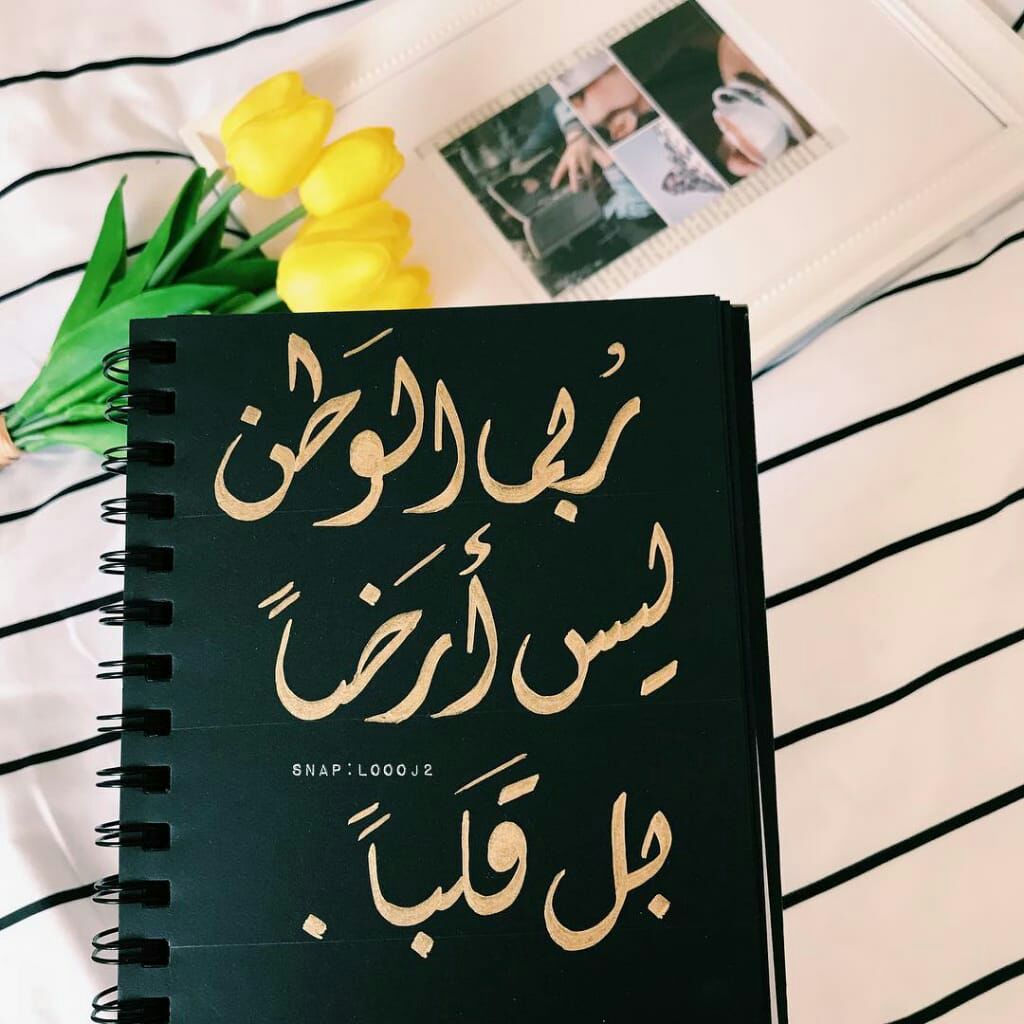 رُبما الوَطن
ليس أرَضاً
SNAP:LOOOJ2
بل قَلباً.